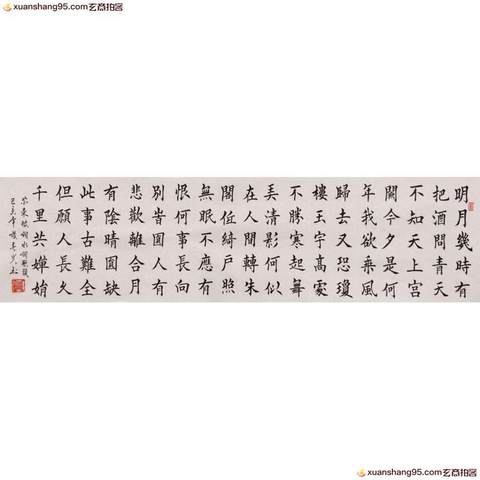 xuanshang95.com玄商拍客
明月幾時有
把酒問青天
不知天上宮
闕今夕是何
年我欲乘風
歸去又恐瓊
樓玉宇高處
不勝寒起舞
弄清影何似
在人間轉朱
閣低綺戶照
無眠不應有
恨何事長向
別旹圓人有
悲歡離合月
有陰晴圓缺
此事古難全
但願人長久
千里共嬋娟
xuanshang95.com玄商拍客